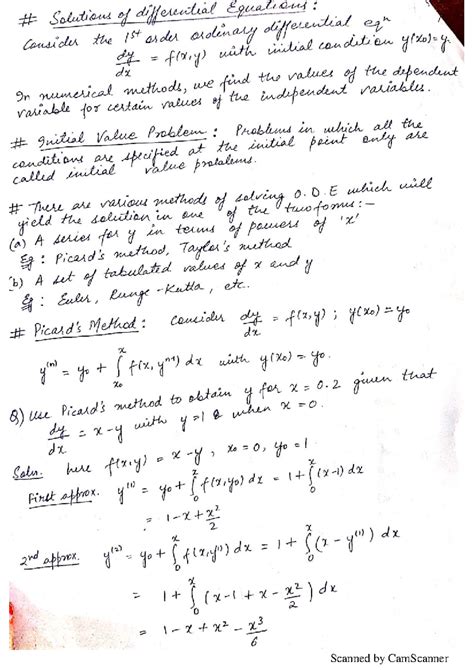 # Solutions of differential Equations:
Consider the 1st order ordinary differential eqn
dy/dx = f(x,y) with initial condition y(x0)=y
In numerical methods, we find the values of the dependent
variable for certain values of the independent variables.
# Initial Value Problem: Problems in which all the
conditions are specified at the initial point only are
called initial value problems.
# There are various methods of solving O.D.E which will
yield the solution in one of the two forms:-
(a) A series for y in terms of powers of 'x'
Eg: Picard's method, Taylor's method
(b) A set of tabulated values of x and y
Eg: Euler, Runge-Kutta, etc..
# Picard's Method: Consider dy/dx = f(x,y); y(x0)=y0
y^(n) = y0 + ∫_{x0}^{x} f(x, y^{n-1}) dx with y(x0) = y0.
Q) Use Picard's method to obtain y for x = 0.2 given that
dy/dx = x-y with y=1 when x=0.
Soln. here f(x,y) = x-y, x0=0, y0=1
First approx. y^(1) = y0 + ∫_0^x f(x,y0) dx = 1 + ∫_0^x (x-1) dx
= 1-x+x²/2
2nd approx. y^(2) = y0 + ∫_0^x f(x,y^(1)) dx = 1 + ∫_0^x (x - y^(1)) dx
= 1 + ∫_0^x (x-1+x-x²/2) dx
= 1-x+x²-x³/6
Scanned by CamScanner